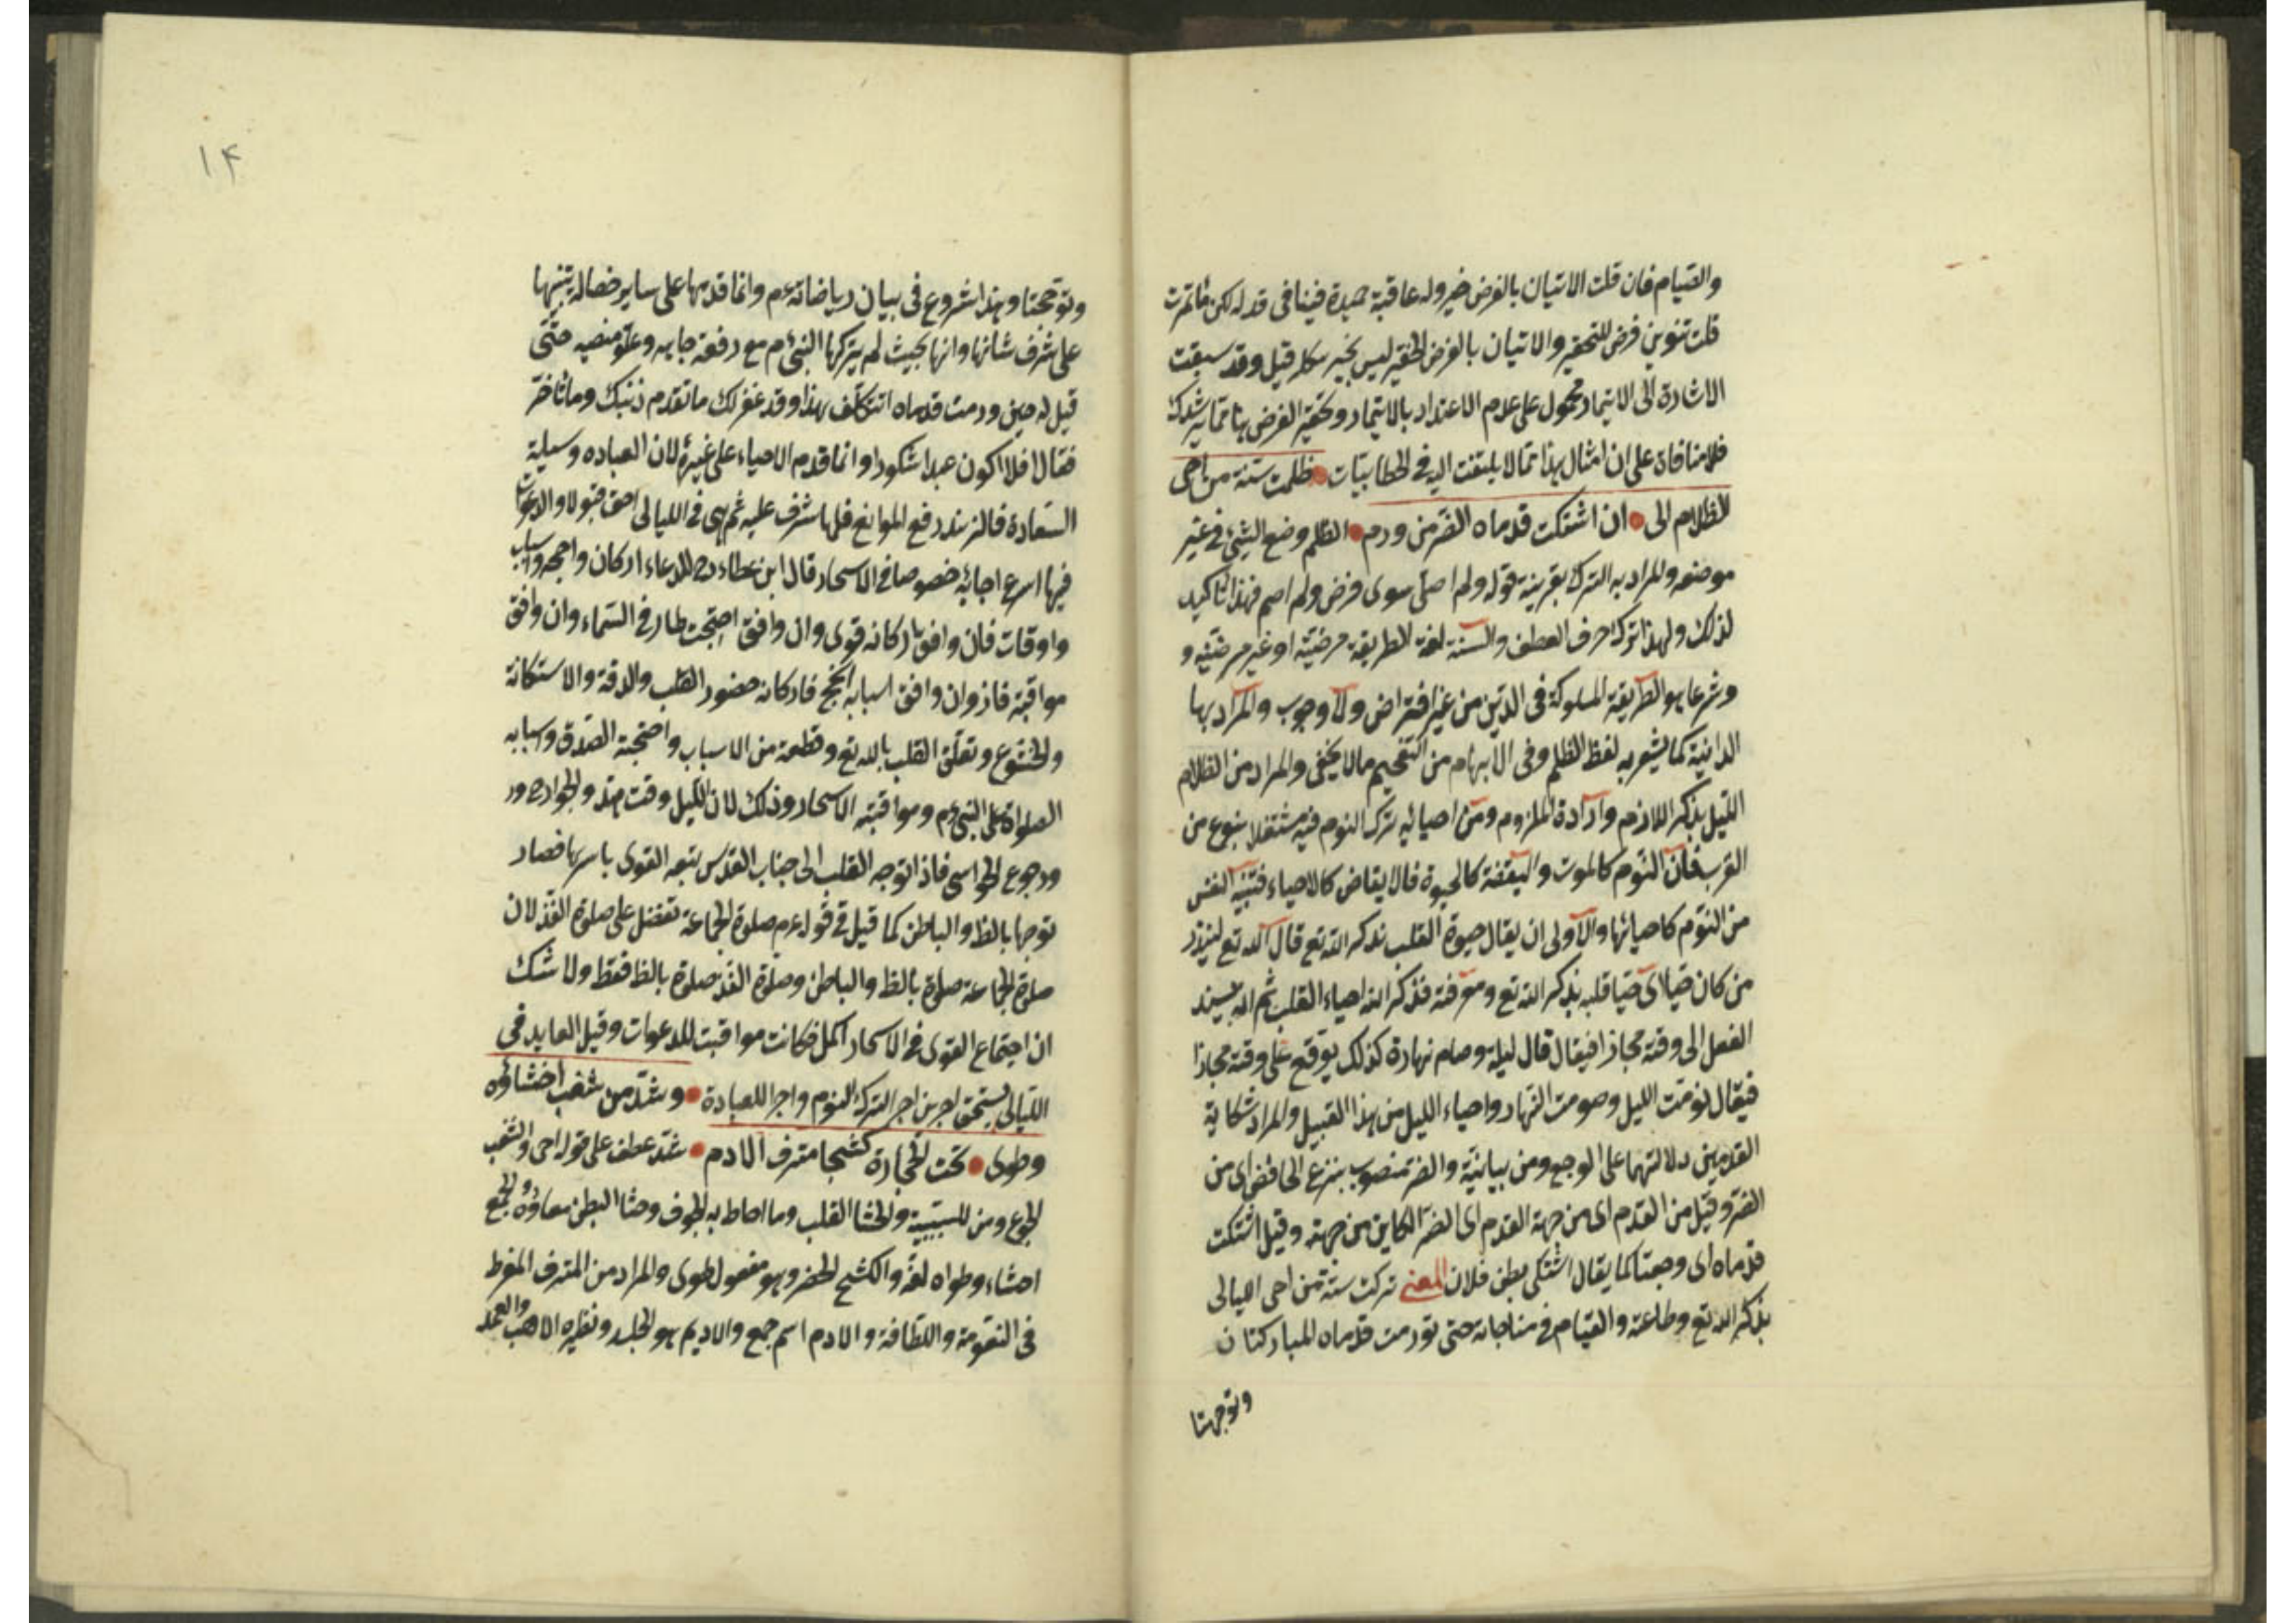 والصيام فان قلت الاتيان بالفرض خير وله عاقبة حميدة فينافى قوله لكن ما تمرت
قلت تنوين فرض للتحقير والاتيان بالفرض الحقير ليس بخير كله قيل وقد سبقت
الاشارة الى الايتمار محمول على عدم الاعتداد بالايتمار وتحقير الفرض بها مما يرشدك
فلا منافاة على ان امثال هذا مما لا يلتفت اليه فى الخطابيات ظلمت سنة من احى
الظلام الى ان اشتكت قدماه الضر من ورم الظلم وضع الشيئ فى غير
موضعه والمراد به الترك بقرينة قوله ولم اصلى سوى فرض ولم اصم فهذا تاكيد
لذلك ولهذا ترك حرف العطف والسنة لغة الطريقة مرضيّة او غير مرضيّة و
وشرعا هو الطريقة المسلوكة فى الدين من غير افتراض ولا وجوب والمراد بها
كما يشعر به لفظ الظلم وفى الابهام من التفخيم مالا يخفى والمراد من الظلام
الليل بذكر اللازم وارادة الملزوم ومن احيائه ترك النوم فيه مشتغلا بنوع من
القرب فان النوم كالموت واليقظة كالحيوة فالايقاض كالاحياء فتنبّه النفس
من النوم كاحيائها والاولى ان يقال حيوة القلب بذكر الله تع قال الله تع لينذر
من كان حيّا اى حيّا قلبه بذكر الله تع ومعرفته فذكر الله احياء القلب ثم انه يسند
الفعل الى وقته مجازا فيقال قال ليله وصام نهاره كذلك يوقع على وقته مجازا
فيقال نومت الليل وصومت النهار واحياء الليل من هذا القبيل والمراد شكاية
القدمين دلالتهما على الوجع ومن بيانيّة والضر منصوب بنزع الخافض اى من
الضر وقيل من القدم اى من جهة القدم اى الضر الكاين من جهته وقيل اشتكت
قدماه اى وجعتا كما يقال اشتكى بطن فلان المعنى تركت سنة من احى الليالى
بذكر الله تع وطاعته والقيام فى مناجاته حتى تورمت قدماه المباركتان
وتوجهتا
١٤
وتوجعتا وهذا شروع فى بيان رياضاته عم وانما قدمها على ساير خصاله تنبيها
على شرف شانها وانها بحيث لم يتركها النبى عم مع رفعة جاهه وعلوّ منصبه حتّى
قيل له حين ورمت قدماه اتتكلّف بهذا وقد غفر لك ما تقدم من ذنبك وما تاخر
فقال افلا اكون عبدا شكورا وانما قدم الاحياء على غيره لان العباده وسيلة
السعادة فالزند رفع الموانع فلها شرف عليه ثم هى فى الليالى احق قبولا والدعوات
فيها اسرع اجابة خصوصا فى الاسحار قال ابن عطاء رح للدعاء اركان واجنحه واسباب
واوقات فان وافق اركانه قوى وان وافق اجنحته طار فى السّماء وان وافق
مواقيته فاز وان وافق اسبابه انجح فاركانه حضور القلب والرقة والاستكانة
والخشوع وتعلّق القلب بالله تع وقطعه من الاسباب واجنحته الصّدق واسبابه
الصلواة على النبى عم ومواقيته الاسحار وذلك لان الليل وقت هدو الجوارح ور
ورجوع الحواس فاذا توجه القلب الى جناب القدس يتبعه القوى باسرها فصار
توجها بالظ والباطن كما قيل فى قوله عم صلوة الجماعة تفضل على صلوة الفذ لان
صلوة الجماعة صلوة بالظ والباطن وصلوة الفذ صلوة بالظ فقط ولا شك
ان اجتماع القوى فى الاسحار اكمل فكانت مواقيت للدعوات وقيل العابد فى
الليالى يستحق اجرين اجر الترك النوم واجر العبادة وشدّ من سغب احشاؤه
وطوى تحت الحجارة كشحا مترف الادم شدّ عطف على قوله احى والسغب
الجوع ومن للسببية والحشا القلب وما احاط به الجوف وحشا البطن معاؤه والجمع
احشاء وطواه لغة والكشح الخصر وهو مفعول طوى والمراد من المترف المفرط
فى النعومة واللطافة والادم اسم جمع والاديم هو الجلد ونظيره الاهب والعمد